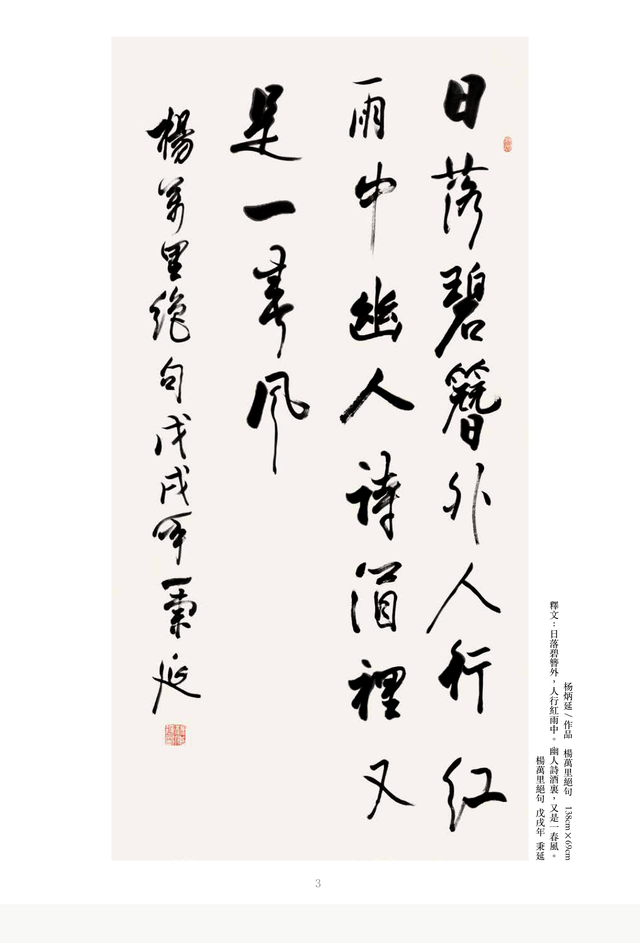 日落碧簪外人行紅
雨中幽人詩酒裡又
是一春風
楊萬里絕句戊戌年秉延
杨炳延／作品 楊萬里絕句 138cm×69cm
釋文：日落碧簪外，人行紅雨中。幽人詩酒裏，又是一春風。
楊萬里絕句 戊戌年 秉延
3